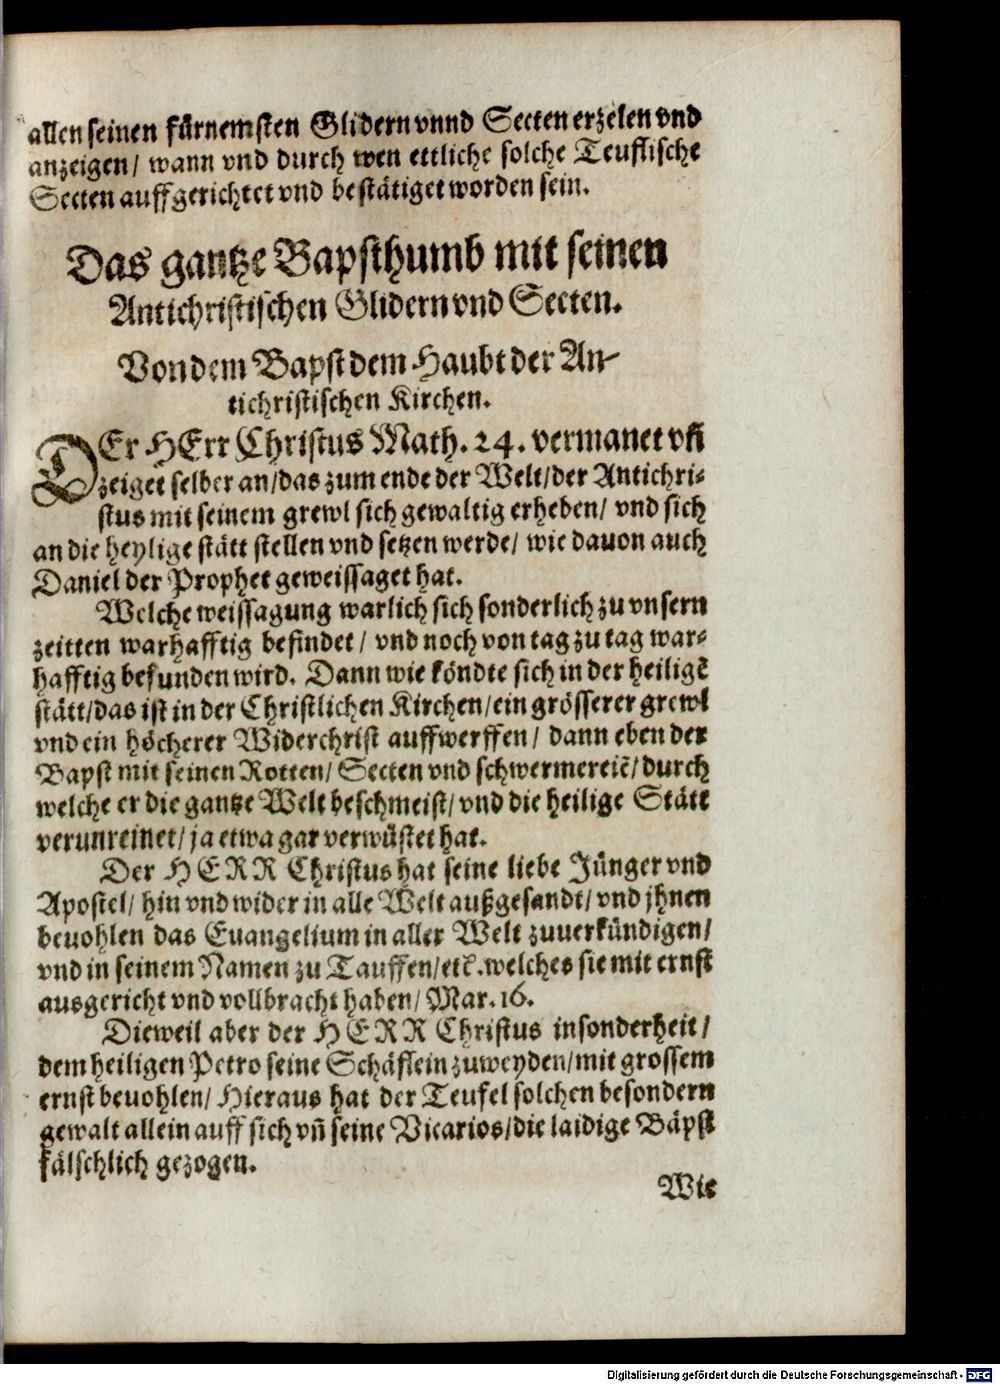 allen seinen fürnemsten Glidern vnnd Secten erzelen vnd
anzeigen/ wann vnd durch wen ettliche solche Teuflische
Secten auffgerichtet vnd bestätiget worden sein.
Das gantze Bapsthumb mit seinen
Antichristischen Glidern vnd Secten.
Von dem Bapst dem Haubt der An-
tichristischen Kirchen.
DEr HErr Christus Math. 24. vermanet vñ
zeiget selber an/das zum ende der Welt/der Antichri-
stus mit seinem grewl sich gewaltig erheben/ vnd sich
an die heylige stätt stellen vnd setzen werde/ wie dauon auch
Daniel der Prophet geweissaget hat.
Welche weissagung warlich sich sonderlich zu vnsern
zeitten warhafftig befindet/ vnd noch von tag zu tag war-
hafftig befunden wird. Dann wie köndte sich in der heiligē
stätt/das ist in der Christlichen Kirchen/ein grösserer grewl
vnd ein höcherer Widerchrist auffwerffen/ dann eben der
Bapst mit seinen Rotten/ Secten vnd schwermereiē/durch
welche er die gantze Welt beschmeist/vnd die heilige Stätt
verunreinet/ ja etwa gar verwüstet hat.
Der HERR Christus hat seine liebe Jünger vnd
Apostel/ hin vnd wider in alle Welt außgesandt/ vnd jhnen
beuohlen das Euangelium in aller Welt zuuerkündigen/
vnd in seinem Namen zu Tauffen/etc. welches sie mit ernst
ausgericht vnd vollbracht haben/ Mar. 16.
Dieweil aber der HERR Christus insonderheit/
dem heiligen Petro seine Schäflein zuweyden/mit grossem
ernst beuohlen/ Hieraus hat der Teufel solchen besondern
gewalt allein auff sich vñ seine Vicarios/die laidige Bäpst
fälschlich gezogen.
Wie
Digitalisierung gefördert durch die Deutsche Forschungsgemeinschaft - DFG